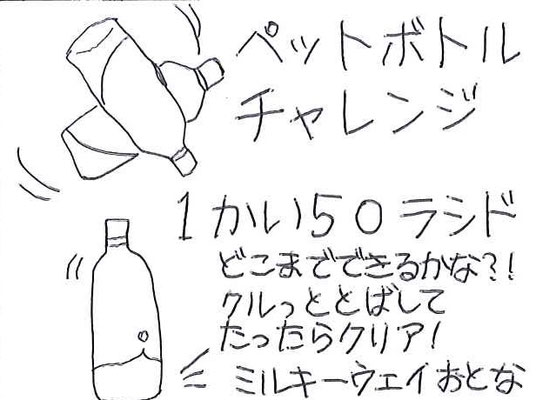 ペットボトル
チャレンジ
1かい50ランド
どこまでできるかな?!
クルっととばして
たったらクリア!
ミルキーウェイおとな